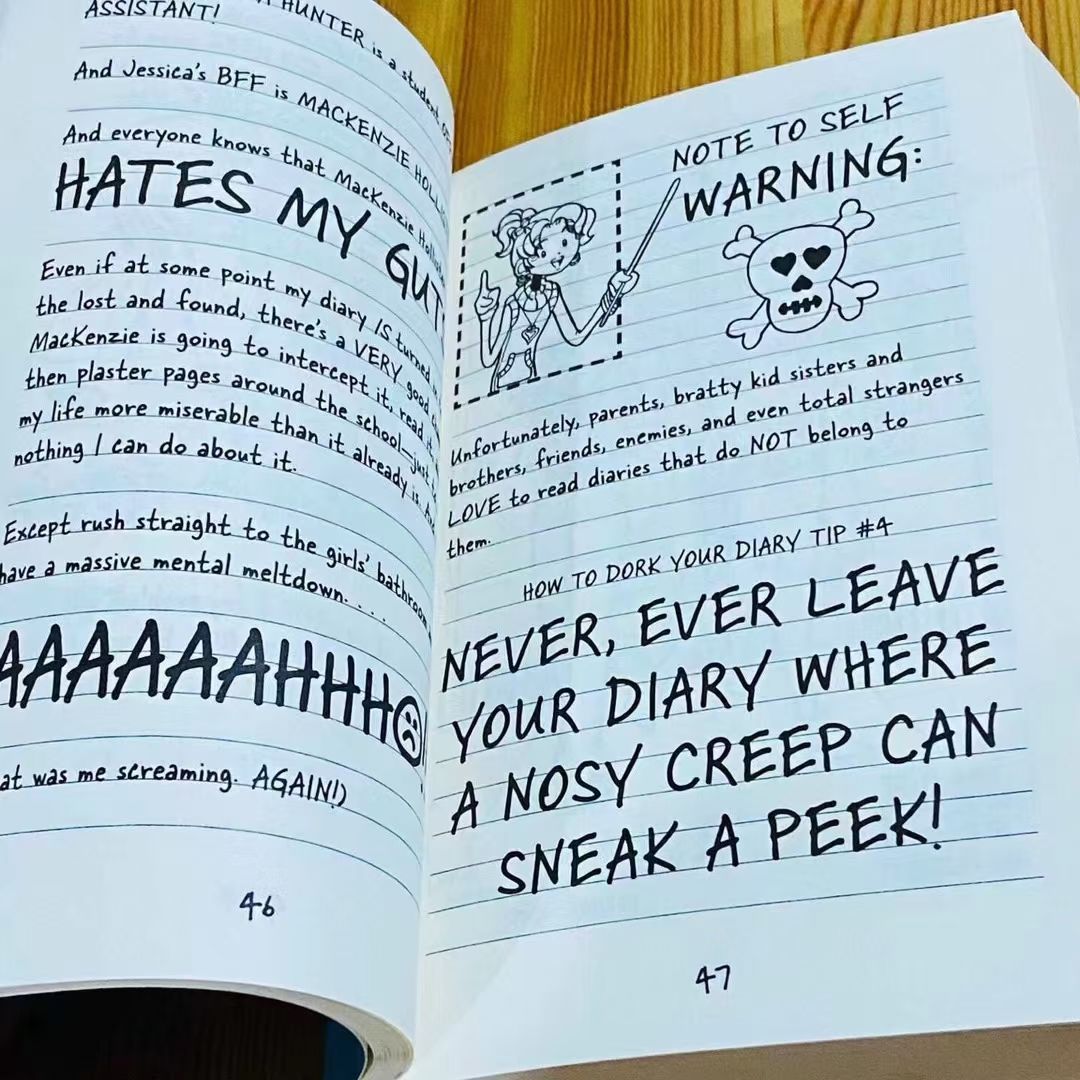 ASSISTANT!
HUNTER is a student
And Jessica's BFF is MACKENZIE
And everyone knows that MacKenzie
HATES MY
Even if at some point my diary IS turned
the lost and found, there's a VERY good
MacKenzie is going to intercept it, read it
then plaster pages around the school—just
my life more miserable than it already is.
nothing I can do about it.
Except rush straight to the girls' bathroom
have a massive mental meltdown. . . .
AAAAAAHHH
at was me screaming. AGAIN!)
46
NOTE TO SELF
WARNING:
Unfortunately, parents, bratty kid sisters and
brothers, friends, enemies, and even total strangers
LOVE to read diaries that do NOT belong to
them.
HOW TO DORK YOUR DIARY TIP #4
NEVER, EVER LEAVE
YOUR DIARY WHERE
A NOSY CREEP CAN
SNEAK A PEEK!
47